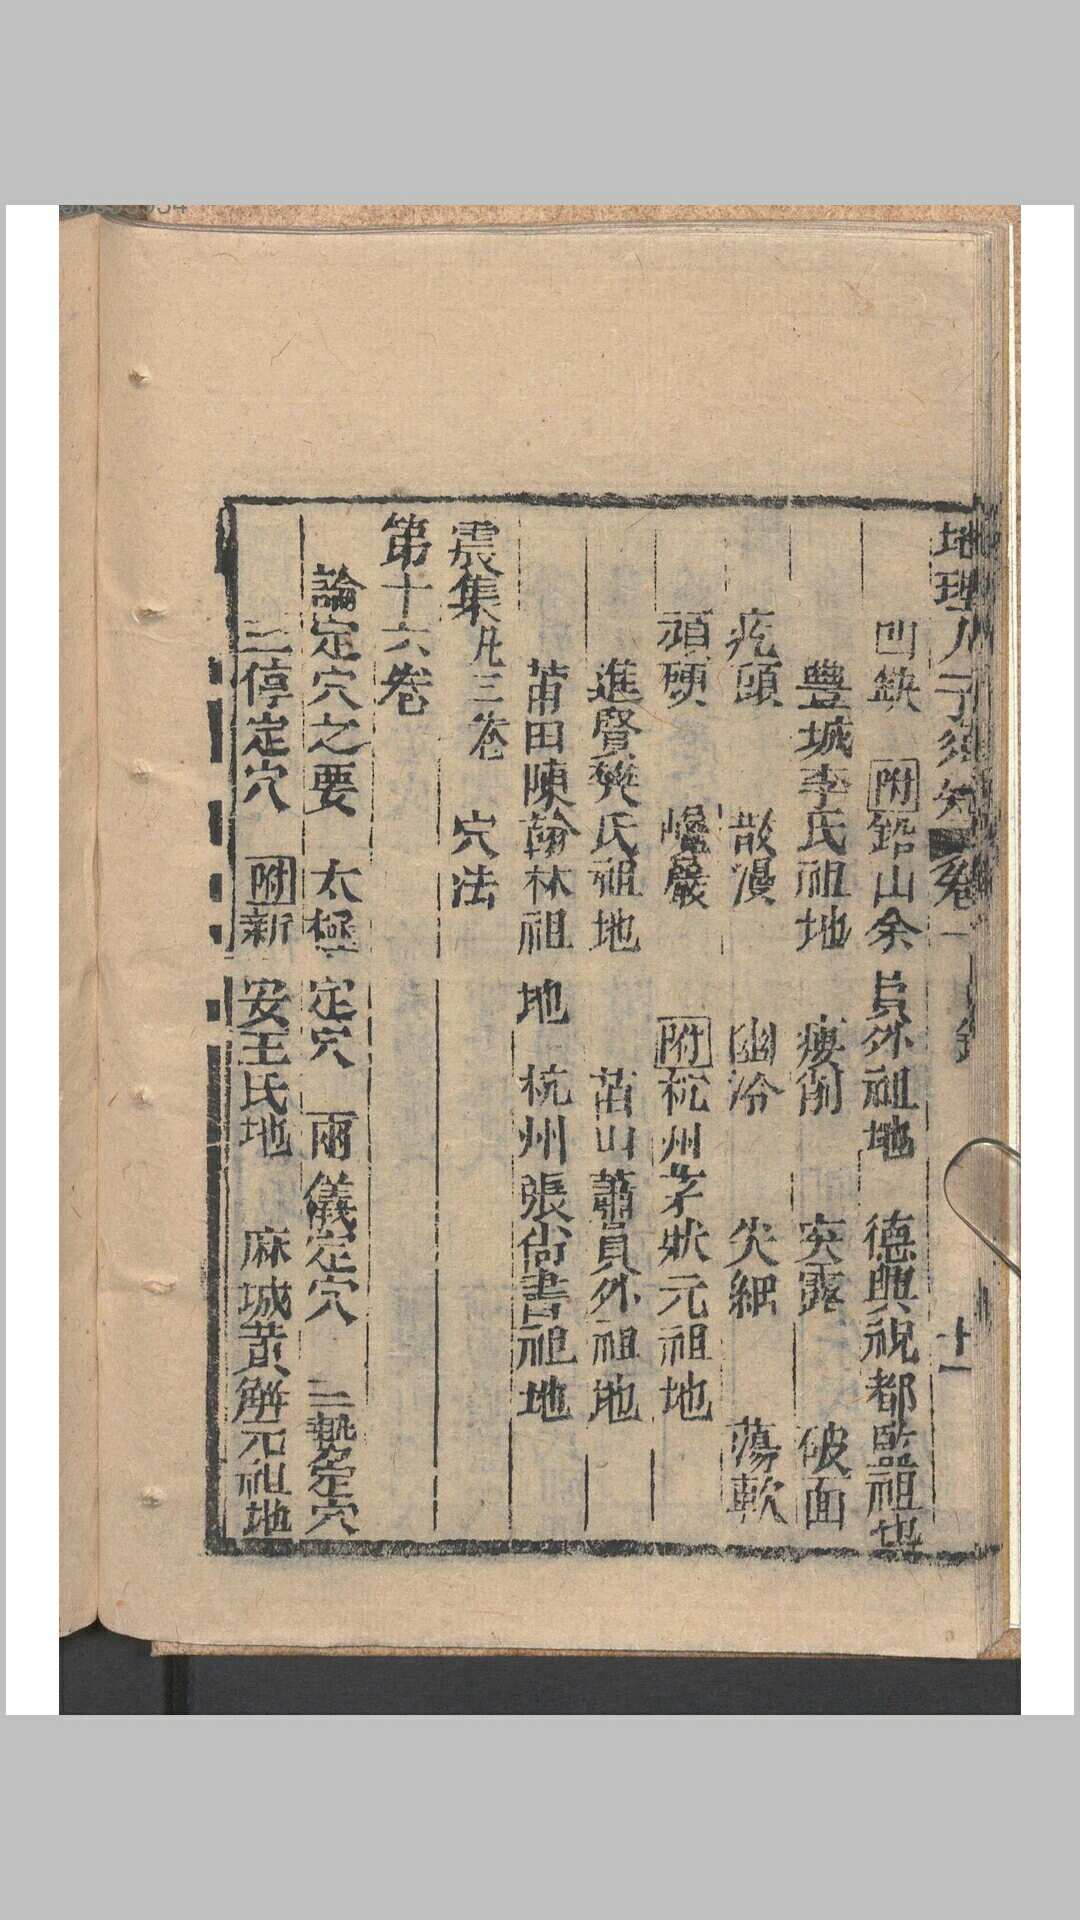 地理人子須知 卷一 目錄 十一
凹缺 附鉛山余員外祖地 德興祝都監祖地
豐城李氏祖地 瘦削 突露 破面
疙頭 散漫 幽冷 尖細 蕩軟
頑硬 巉巖 附杭州茅狀元祖地
進賢樊氏祖地 苗山蕭員外祖地
莆田陳翰林祖地 杭州張尚書祖地
震集凡三卷 穴法
第十六卷
論定穴之要 太極定穴 兩儀定穴 三勢定穴
三停定穴 附新安王氏地 麻城黃解元祖地